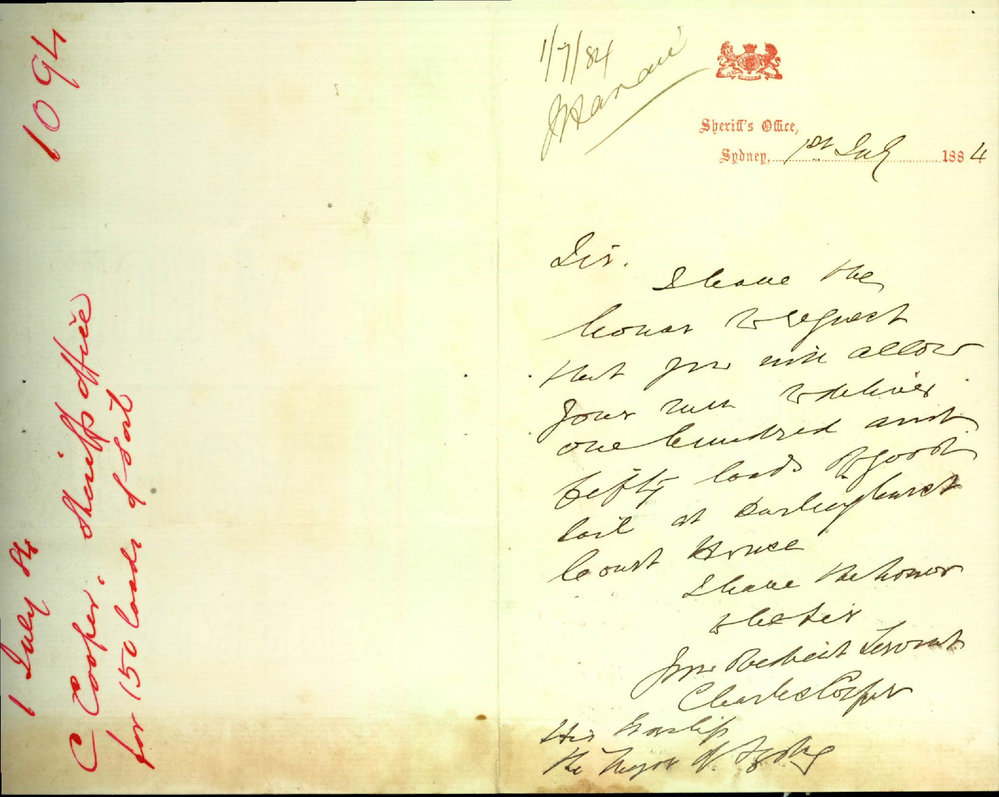 1094
1 July 84
C Cooper. Sheriffs office
for 150 loads of soil
1/7/84
Sheriff's Office,
Sydney, 1st July 1884
Sir.
I have the
honor to request
that you will allow
your men to deliver
one hundred and
fifty loads of good
soil at Darlinghurst
Court House
I have the honor
to be Sir
Your Obedient Servant
Charles Cowper
His Worship
the Mayor of Sydney